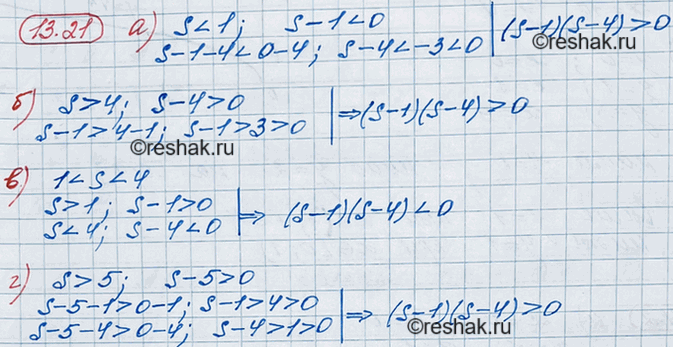 13.21 а) s<1; s-1<0 | (s-1)(s-4)>0
s-1-4<0-4; s-4<-3<0
©reshak.ru
б) s>4; s-4>0
s-1>4-1; s-1>3>0 | ⇒(s-1)(s-4)>0
©reshak.ru
в) 1<s<4
s>1; s-1>0
s<4; s-4<0 | ⇒ (s-1)(s-4)<0
г) s>5; s-5>0
s-5-1>0-1; s-1>4>0 | ⇒ (s-1)(s-4)>0
s-5-4>0-4; s-4>1>0
©reshak.ru
©reshak.ru